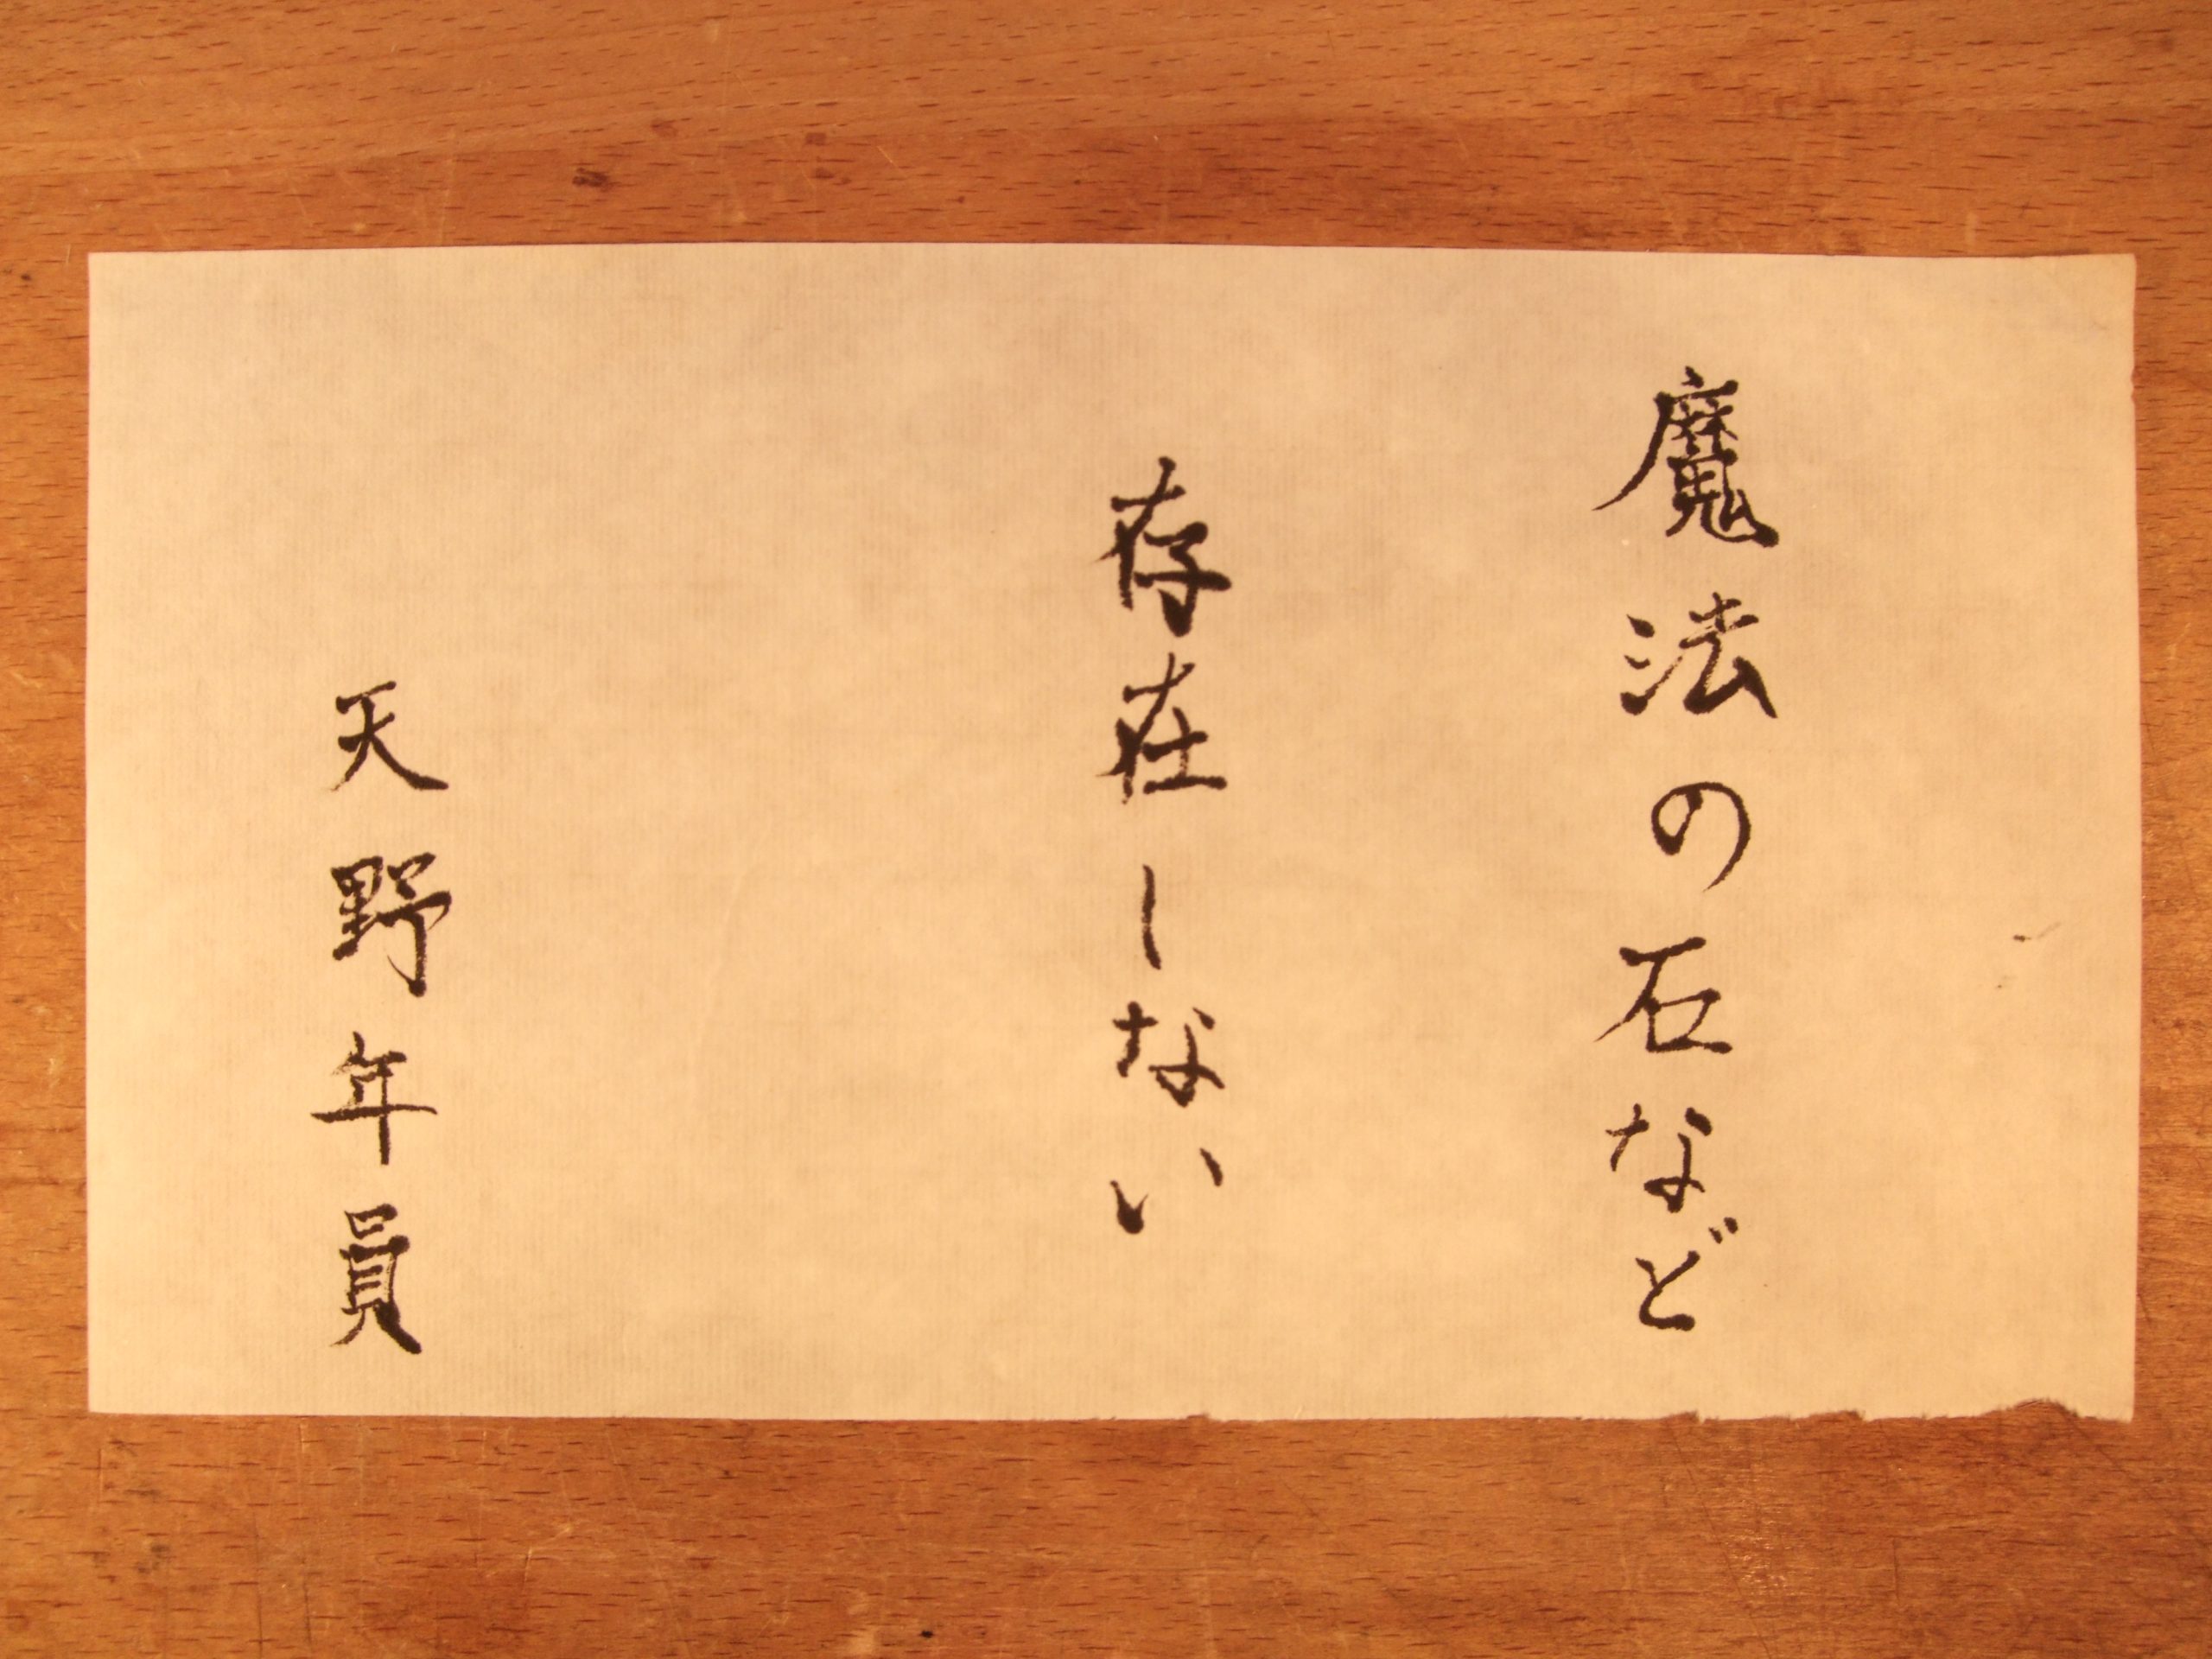 魔法の石など
存在しない
天野年員